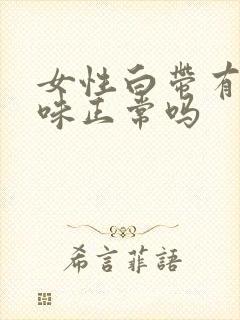 女性白带有
味正常吗
希言菲語